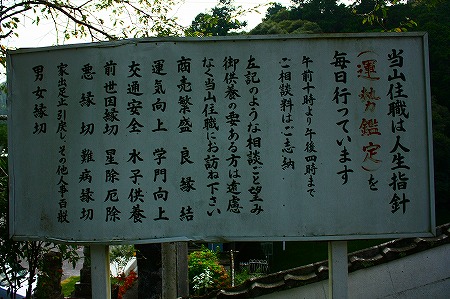 当山住職は人生指針
（運勢鑑定）を
毎日行っています
午前十時より午後四時まで
ご相談料はご志納
左記のような相談ごと望み
御供養の要ある方は遠慮
なく当山住職にお訪ね下さい
商売繁盛 良縁結
運気向上 学門向上
交通安全 水子供養
前世因縁切 星除厄除
悪縁切 難病縁切
家出足止引戻しその他人事百般
男女縁切